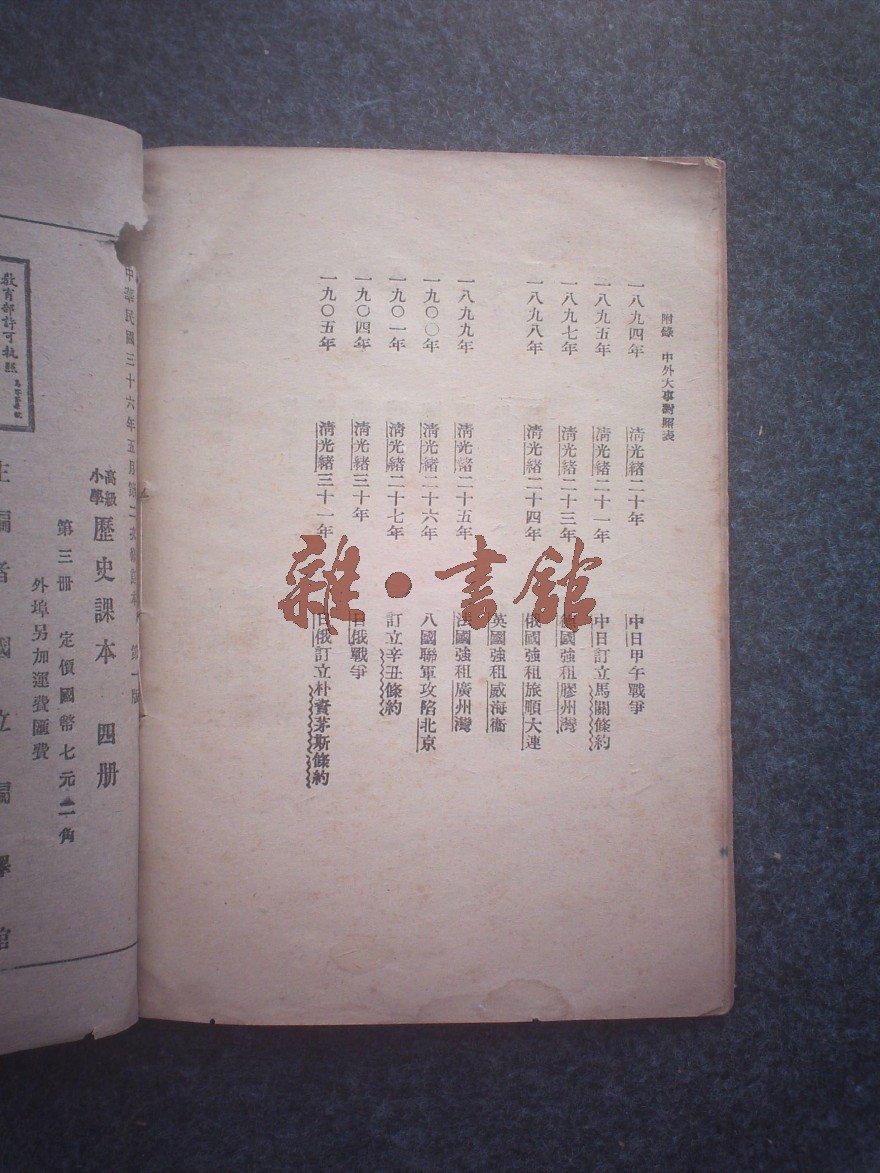 附錄 中外大事對照表
一八九四年 清光緒二十年 中日甲午戰爭
一八九五年 清光緒二十一年 中日訂立馬關條約
一八九七年 清光緒二十三年 德國強租膠州灣
一八九八年 清光緒二十四年 俄國強租旅順大連
英國強租威海衞
一八九九年 清光緒二十五年 法國強租廣州灣
一九〇〇年 清光緒二十六年 八國聯軍攻陷北京
一九〇一年 清光緒二十七年 訂立辛丑條約
一九〇四年 清光緒三十年 日俄戰爭
一九〇五年 清光緒三十一年 日俄訂立朴資茅斯條約
雜·書館
中華民國三十六年五月第二次 第一版
高級小學 歷史課本 四册
第三册 定價國幣七元二角
外埠另加運費匯費
主編者 國立編譯館
教育部許可執照